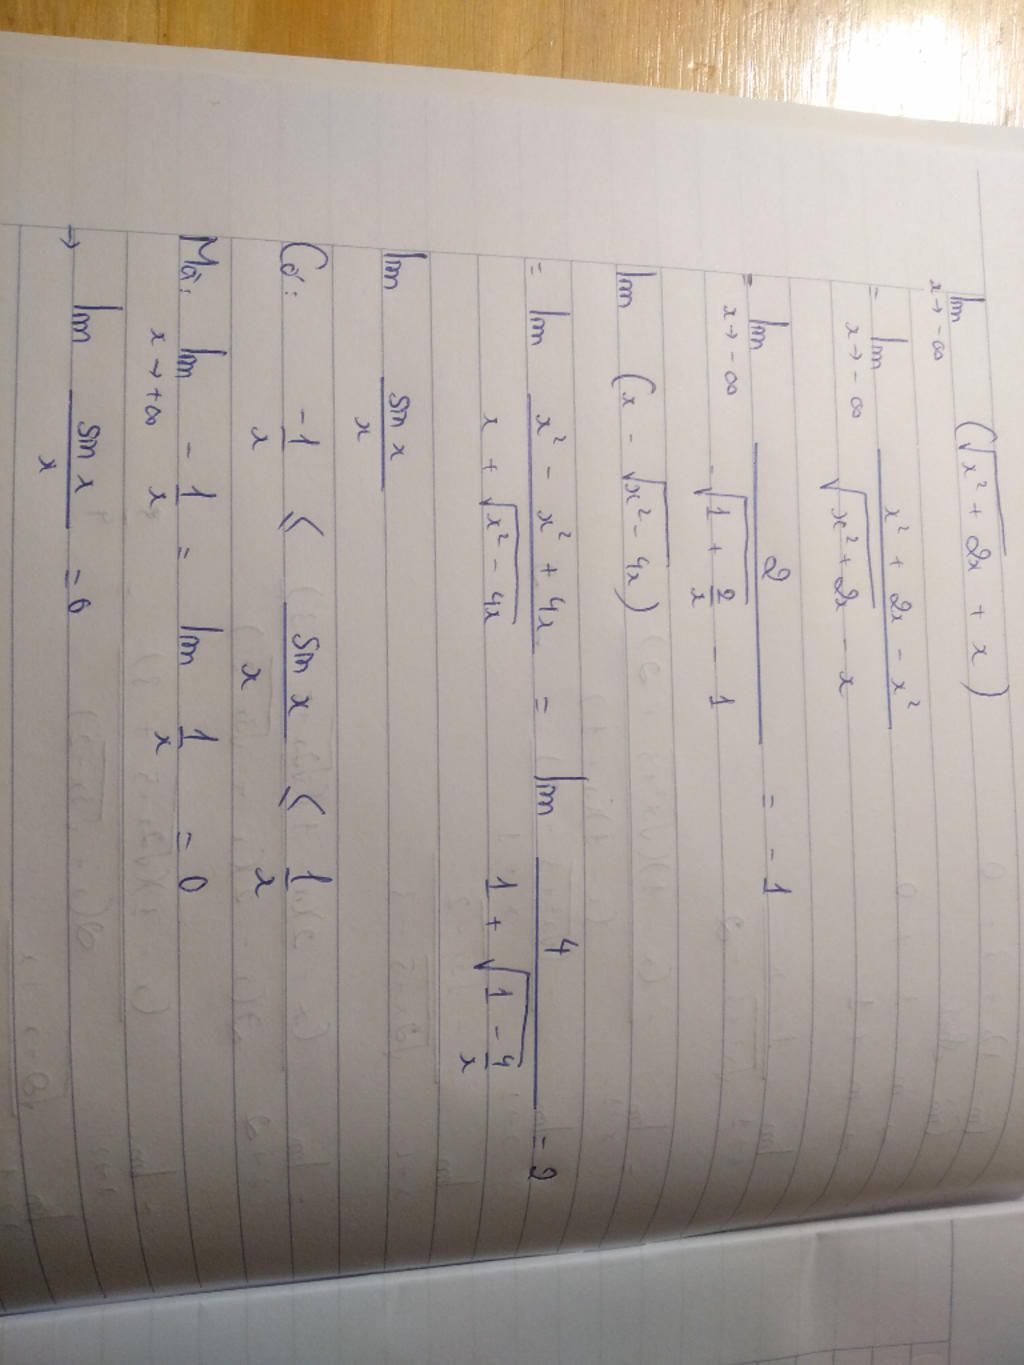 lim (√(x² + 2x) + x)
x → -∞
= lim (x² + 2x - x²) / (√(x² + 2x) - x)
x → -∞
= lim 2 / (-√(1 + 2/x) - 1) = -1
x → -∞
lim (x - √(x² - 4x))
= lim (x² - x² + 4x) / (x + √(x² - 4x)) = lim 4 / (1 + √(1 - 4/x)) = 2
lim sin x / x
Có: -1/x ≤ sin x / x ≤ 1/x
Mà: lim -1/x = lim 1/x = 0
x → +∞
→ lim sin x / x = 0